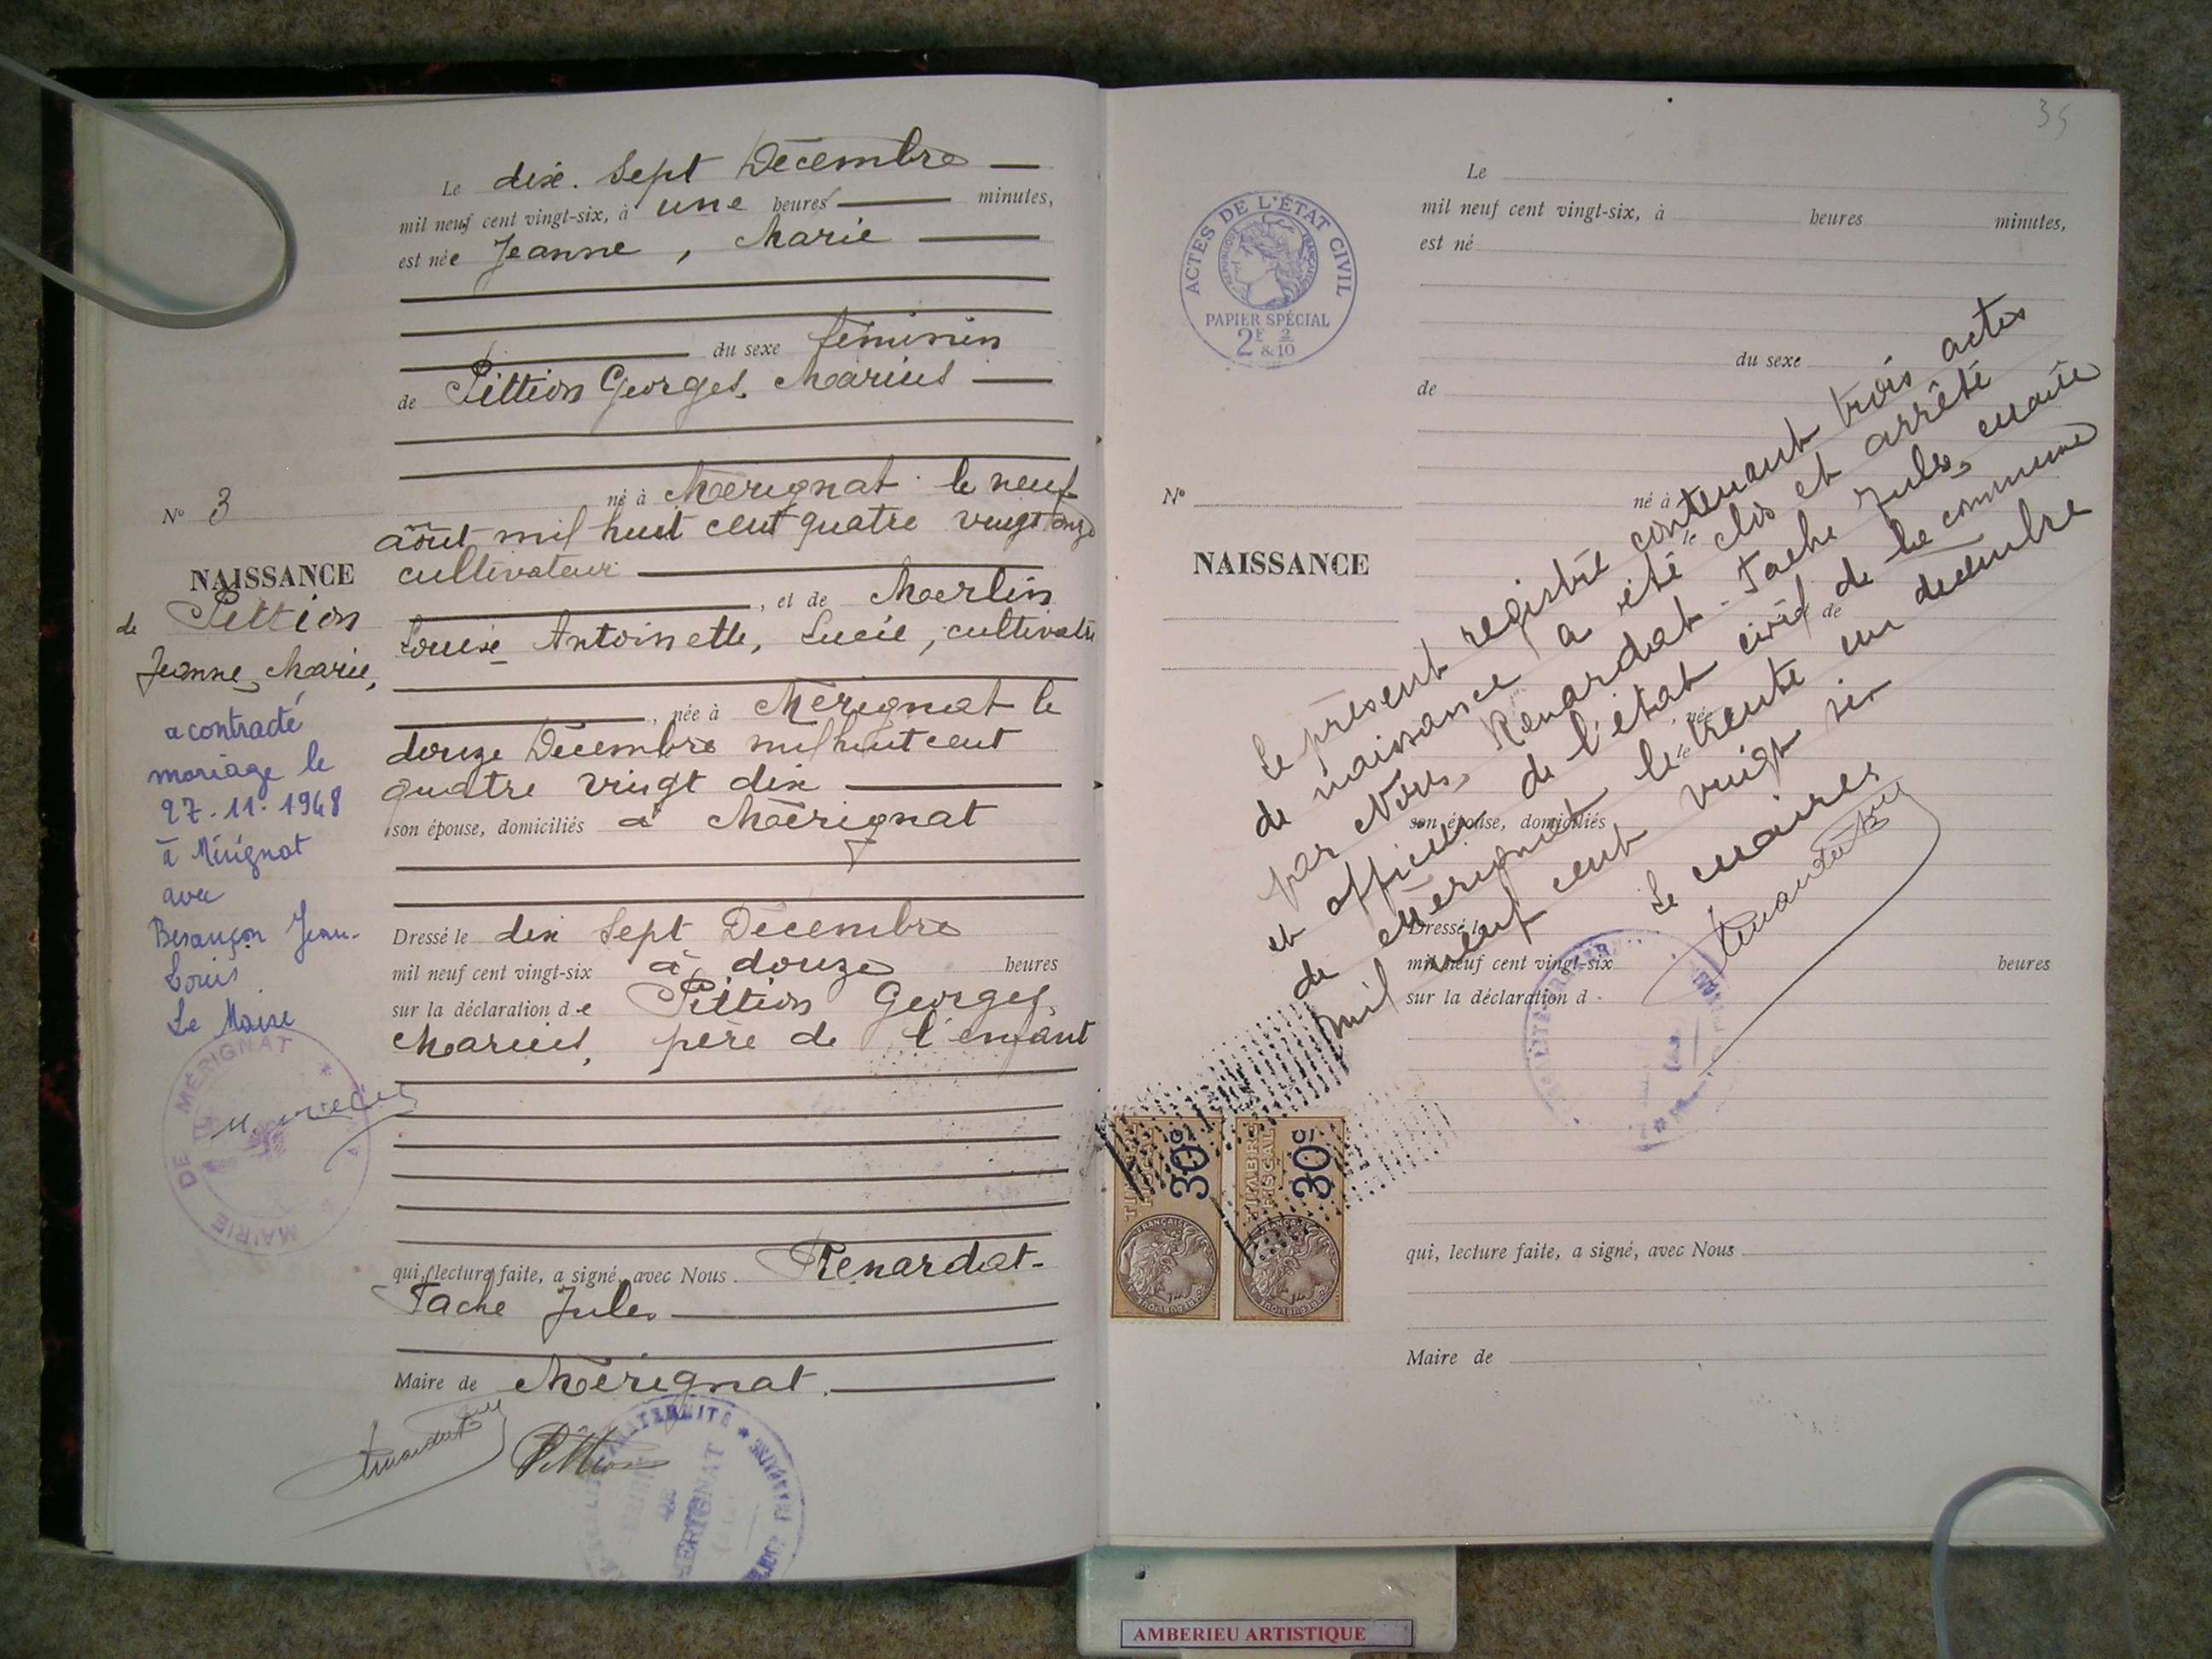 Le dix. Sept Décembre
mil neuf cent vingt-six, à une heures minutes,
est née Jeanne, Marie
du sexe féminin
de Pittion Georges, Marius
né à Mérignat le neuf
août mil huit cent quatre vingt onze
cultivateur
, et de Merlin
Louise Antoinette, Lucie, cultivatri
, née à Mérignat le
douze Décembre mil huit cent
quatre vingt dix
son épouse, domiciliés à Mérignat
Dressé le dix Sept Décembre
mil neuf cent vingt-six à douze heures
sur la déclaration de Pittion Georges,
Marius, père de l'enfant
qui, lecture faite, a signé, avec Nous. Renardat-
Tache Jules
Maire de Mérignat.
Pittion
FRATERNITÉ
MÉRIGNAT
N° 3
NAISSANCE
de Pittion
Jeanne, Marie,
a contracté
mariage le
27.11.1948
à Mérignat
avec
Besançon Jean-
Louis
Le Maire
MAIRIE DE MÉRIGNAT
35
ACTES DE L'ÉTAT CIVIL
RÉPUBLIQUE FRANÇAISE
PAPIER SPÉCIAL
2F & 2/10
Le
mil neuf cent vingt-six, à heures minutes,
est né
du sexe
de
N°
né à
le
NAISSANCE
, et de
, née
le
son épouse, domiciliés
Dressé le
mil neuf cent vingt-six heures
sur la déclaration d
qui, lecture faite, a signé, avec Nous
Maire de
Le présent registre contenant trois actes
de naissance a été clos et arrêté
par Nous, Renardat-Tache Jules, maire
et officier de l'état civil de la commune
de Mérignat le trente un décembre
mil neuf cent vingt six
Le maire,
TIMBRE FISCAL
30c
TIMBRE FISCAL
30c
AMBERIEU ARTISTIQUE